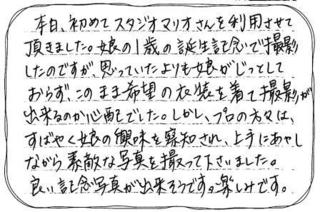 本日、初めてスタジオマリオさんを利用させて
頂きました。娘の1歳の誕生記念で撮影
したのですが、思っていたよりも娘がじっとして
おらず、このまま希望の衣装を着て撮影が
出来るのか心配でした。しかし、プロの方々は、
すばやく娘の興味を察知され、上手にあやし
ながら素敵な写真を撮って下さいました。
良い記念写真が出来そうです。楽しみです。